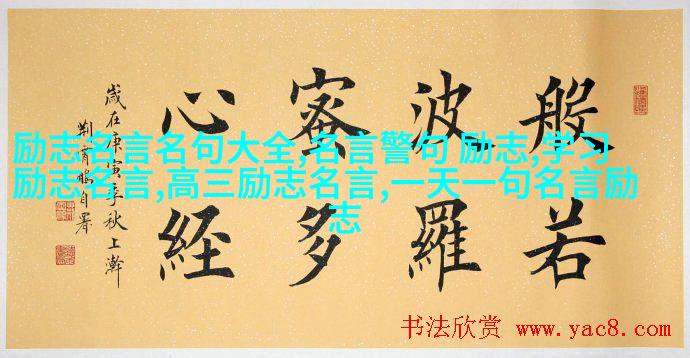 般若
波羅
蜜多
心経
歲在庚寅季秋上澣
荆霄鹏自署
励志名言名句大全,名言警句 励志,学习
励志名言,高三励志名言,一天一句名言励
志
书法欣赏 www.yac8.com